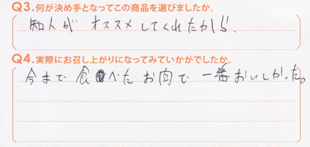 Q3.何が決め手となってこの商品を選びましたか。
知人が オススメしてくれたから。
Q4.実際にお召し上がりになってみていかがでしたか。
今まで 食べた お肉で 一番おいしかった。